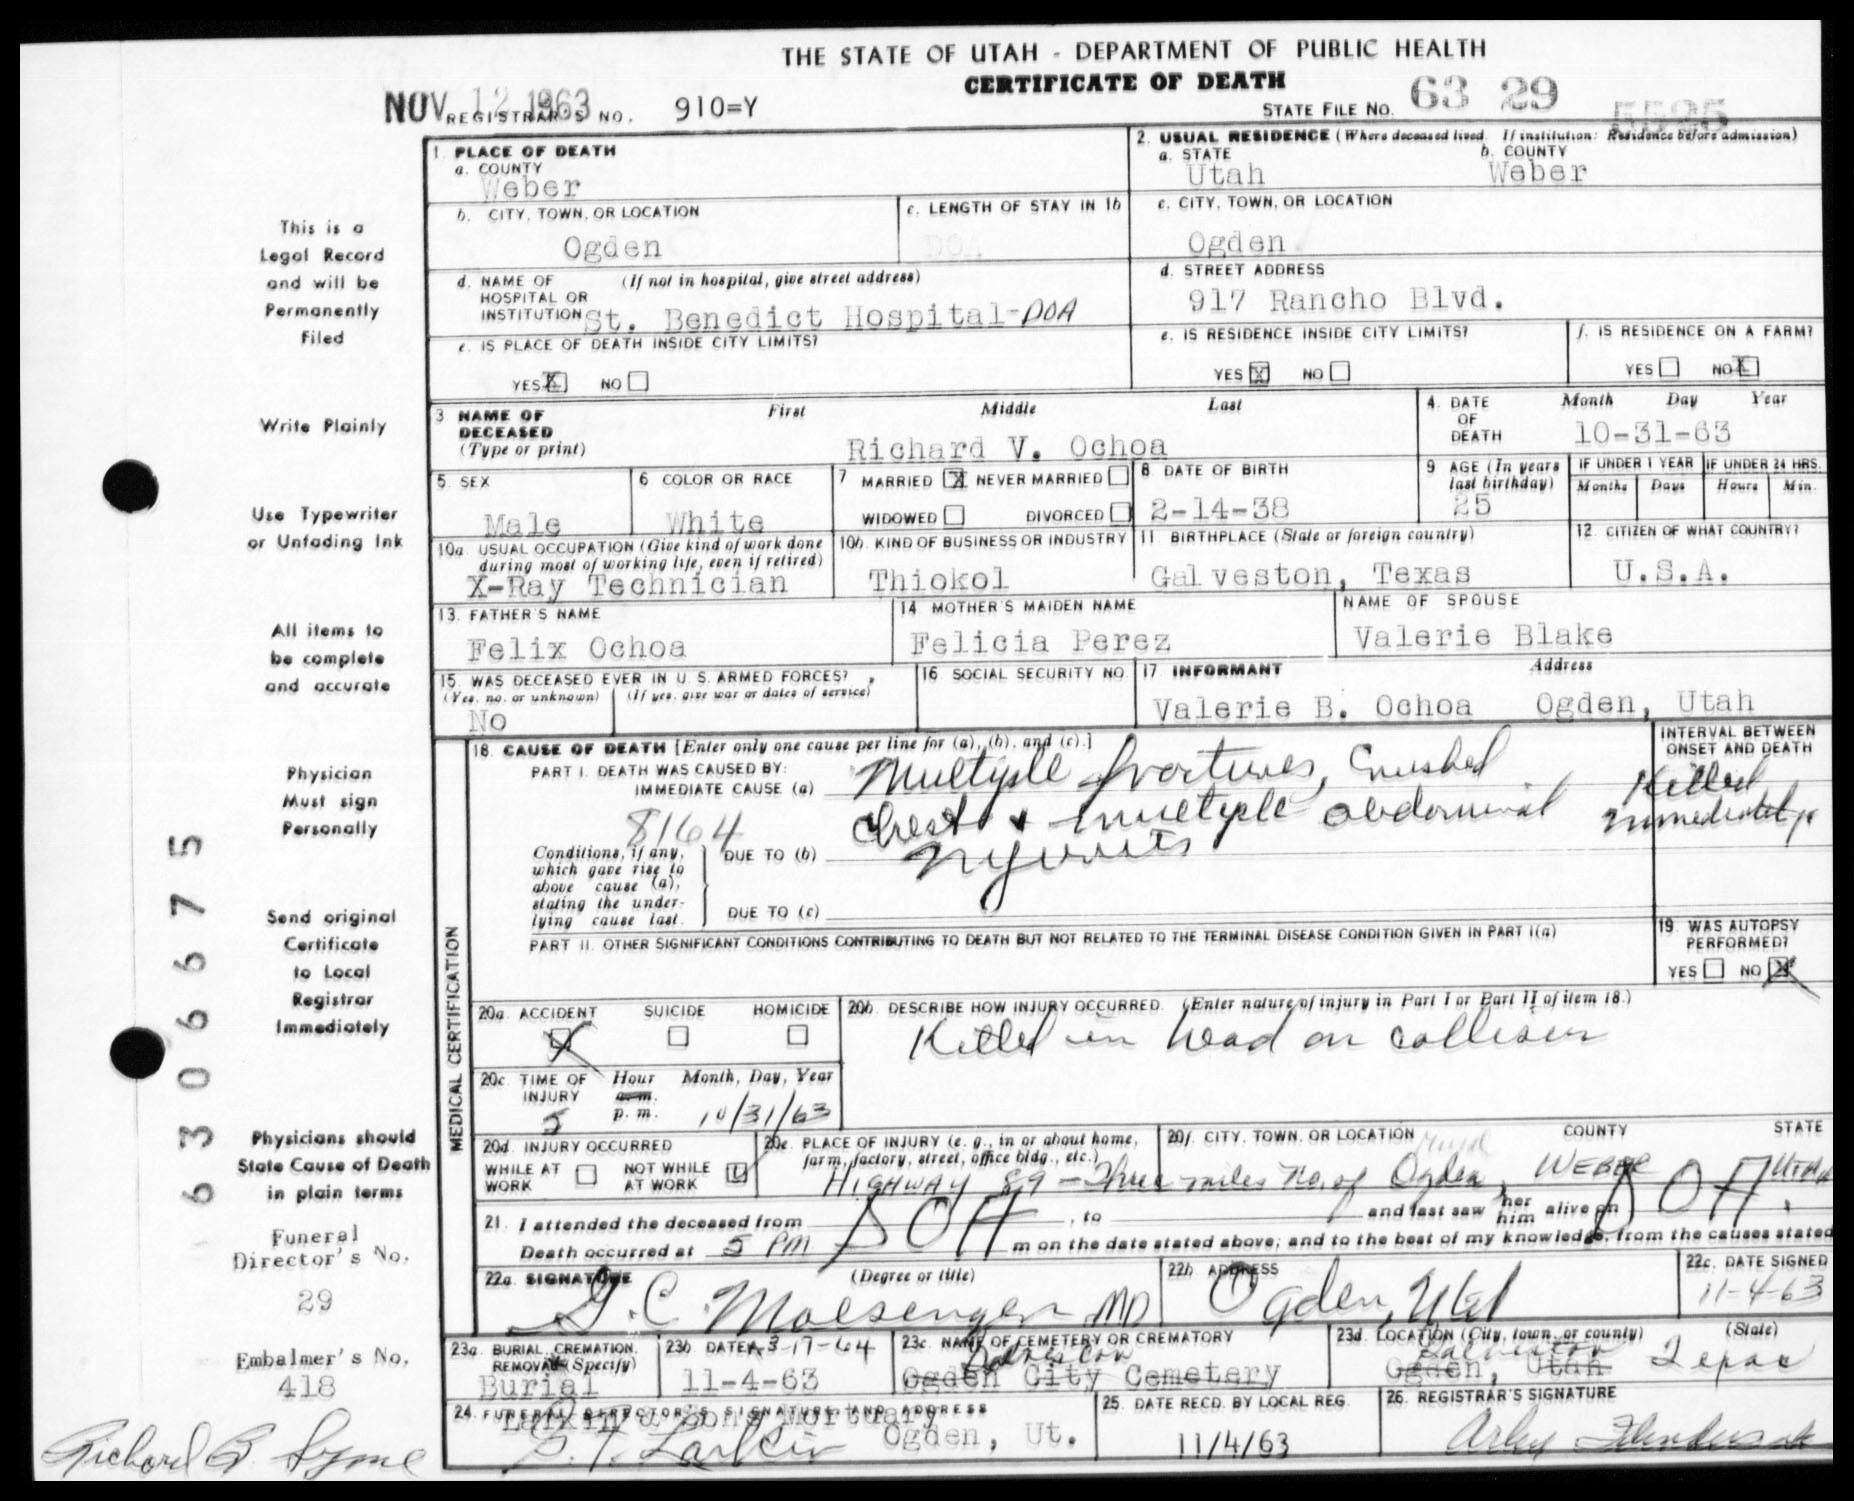 THE STATE OF UTAH - DEPARTMENT OF PUBLIC HEALTH
CERTIFICATE OF DEATH
NOV 12 1963
REGISTRAR'S NO. 910=Y
STATE FILE NO. 63 29 5525
1. PLACE OF DEATH
a. COUNTY
Weber
2. USUAL RESIDENCE (Where deceased lived. If institution: Residence before admission)
a. STATE b. COUNTY
Utah Weber
b. CITY, TOWN, OR LOCATION
Ogden
c. LENGTH OF STAY IN 1b
DOA
c. CITY, TOWN, OR LOCATION
Ogden
d. NAME OF HOSPITAL OR INSTITUTION (If not in hospital, give street address)
St. Benedict Hospital-DOA
d. STREET ADDRESS
917 Rancho Blvd.
e. IS PLACE OF DEATH INSIDE CITY LIMITS?
YES X NO
e. IS RESIDENCE INSIDE CITY LIMITS?
YES X NO
f. IS RESIDENCE ON A FARM?
YES NO X
3 NAME OF DECEASED (Type or print)
First Middle Last
Richard V. Ochoa
4. DATE OF DEATH Month Day Year
10-31-63
5. SEX
Male
6 COLOR OR RACE
White
7 MARRIED X NEVER MARRIED
WIDOWED DIVORCED
8 DATE OF BIRTH
2-14-38
9 AGE (In years last birthday)
25
IF UNDER 1 YEAR IF UNDER 24 HRS.
Months Days Hours Min.
10a. USUAL OCCUPATION (Give kind of work done during most of working life, even if retired)
X-Ray Technician
10b. KIND OF BUSINESS OR INDUSTRY
Thiokol
11 BIRTHPLACE (State or foreign country)
Galveston, Texas
12 CITIZEN OF WHAT COUNTRY?
U.S.A.
13. FATHER'S NAME
Felix Ochoa
14 MOTHER'S MAIDEN NAME
Felicia Perez
NAME OF SPOUSE
Valerie Blake
15. WAS DECEASED EVER IN U.S. ARMED FORCES?
(Yes, no. or unknown) (If yes, give war or dates of service)
No
16. SOCIAL SECURITY NO.
17 INFORMANT Address
Valerie B. Ochoa Ogden, Utah
MEDICAL CERTIFICATION
18. CAUSE OF DEATH [Enter only one cause per line for (a), (b), and (c).]
INTERVAL BETWEEN ONSET AND DEATH
PART I. DEATH WAS CAUSED BY:
IMMEDIATE CAUSE (a)
Multiple fractures, Crushed
Chest & multiple abdominal
injuries
Killed
immediately
8164
Conditions, if any, which gave rise to above cause (a), stating the underlying cause last.
DUE TO (b)
DUE TO (c)
PART II. OTHER SIGNIFICANT CONDITIONS CONTRIBUTING TO DEATH BUT NOT RELATED TO THE TERMINAL DISEASE CONDITION GIVEN IN PART I(a)
19. WAS AUTOPSY PERFORMED?
YES NO X
20a. ACCIDENT SUICIDE HOMICIDE
X
20b. DESCRIBE HOW INJURY OCCURRED. (Enter nature of injury in Part I or Part II of item 18.)
Killed in head on collision
20c. TIME OF INJURY Hour Month, Day, Year
a.m.
p.m.
5 10/31/63
20d. INJURY OCCURRED
WHILE AT WORK NOT WHILE AT WORK
20e. PLACE OF INJURY (e. g., in or about home, farm, factory, street, office bldg., etc.)
20f. CITY, TOWN, OR LOCATION COUNTY STATE
HIGHWAY 89 - Three miles No. of Ogden, WEBER UTAH
21. I attended the deceased from , to and last saw her him alive on
DOA DOA
Death occurred at 5 PM m on the date stated above; and to the best of my knowledge, from the causes stated
22a. SIGNATURE (Degree or title)
MD
22b ADDRESS
Ogden, Utah
22c. DATE SIGNED
11-4-63
23a. BURIAL, CREMATION, REMOVAL (Specify)
Burial
23b DATE 3-17-64
11-4-63
23c. NAME OF CEMETERY OR CREMATORY
Galveston
Ogden City Cemetery
23d. LOCATION (City, town, or county) (State)
Galveston Texas
Ogden, Utah
24. FUNERAL DIRECTOR'S SIGNATURE AND ADDRESS
Larkin & Sons Mortuary
Larkin Ogden, Ut.
25. DATE RECD. BY LOCAL REG.
11/4/63
26. REGISTRAR'S SIGNATURE
This is a
Legal Record
and will be
Permanently
Filed
Write Plainly
Use Typewriter
or Unfading Ink
All items to
be complete
and accurate
Physician
Must sign
Personally
Send original
Certificate
to Local
Registrar
Immediately
Physicians should
State Cause of Death
in plain terms
Funeral
Director's No.
29
Embalmer's No.
418
Richard
6 3 0 6 6 7 5